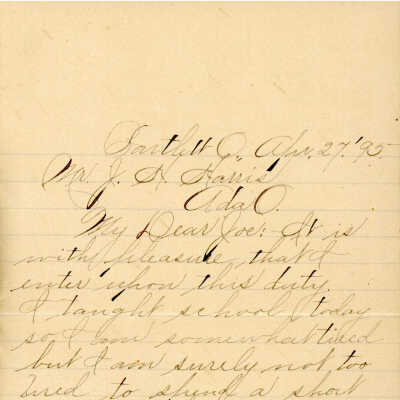 Bartlett O., Apr. 27, '95.
Mr. J. H. Harris
Ada O.
My Dear Joe:- It is
with pleasure that I
enter upon this duty.
I taught school today
so I am somewhat tired
but I am surely not too
tired to spend a short